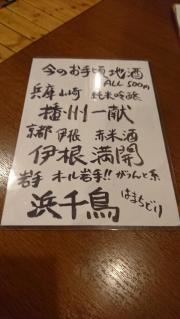 今のお手頃地酒
ALL 500円
兵庫 山崎 純米吟醸
播州一献
京都 伊根 赤米酒
伊根満開
岩手 オール岩手!! がうんと系
浜千鳥 はまちどり